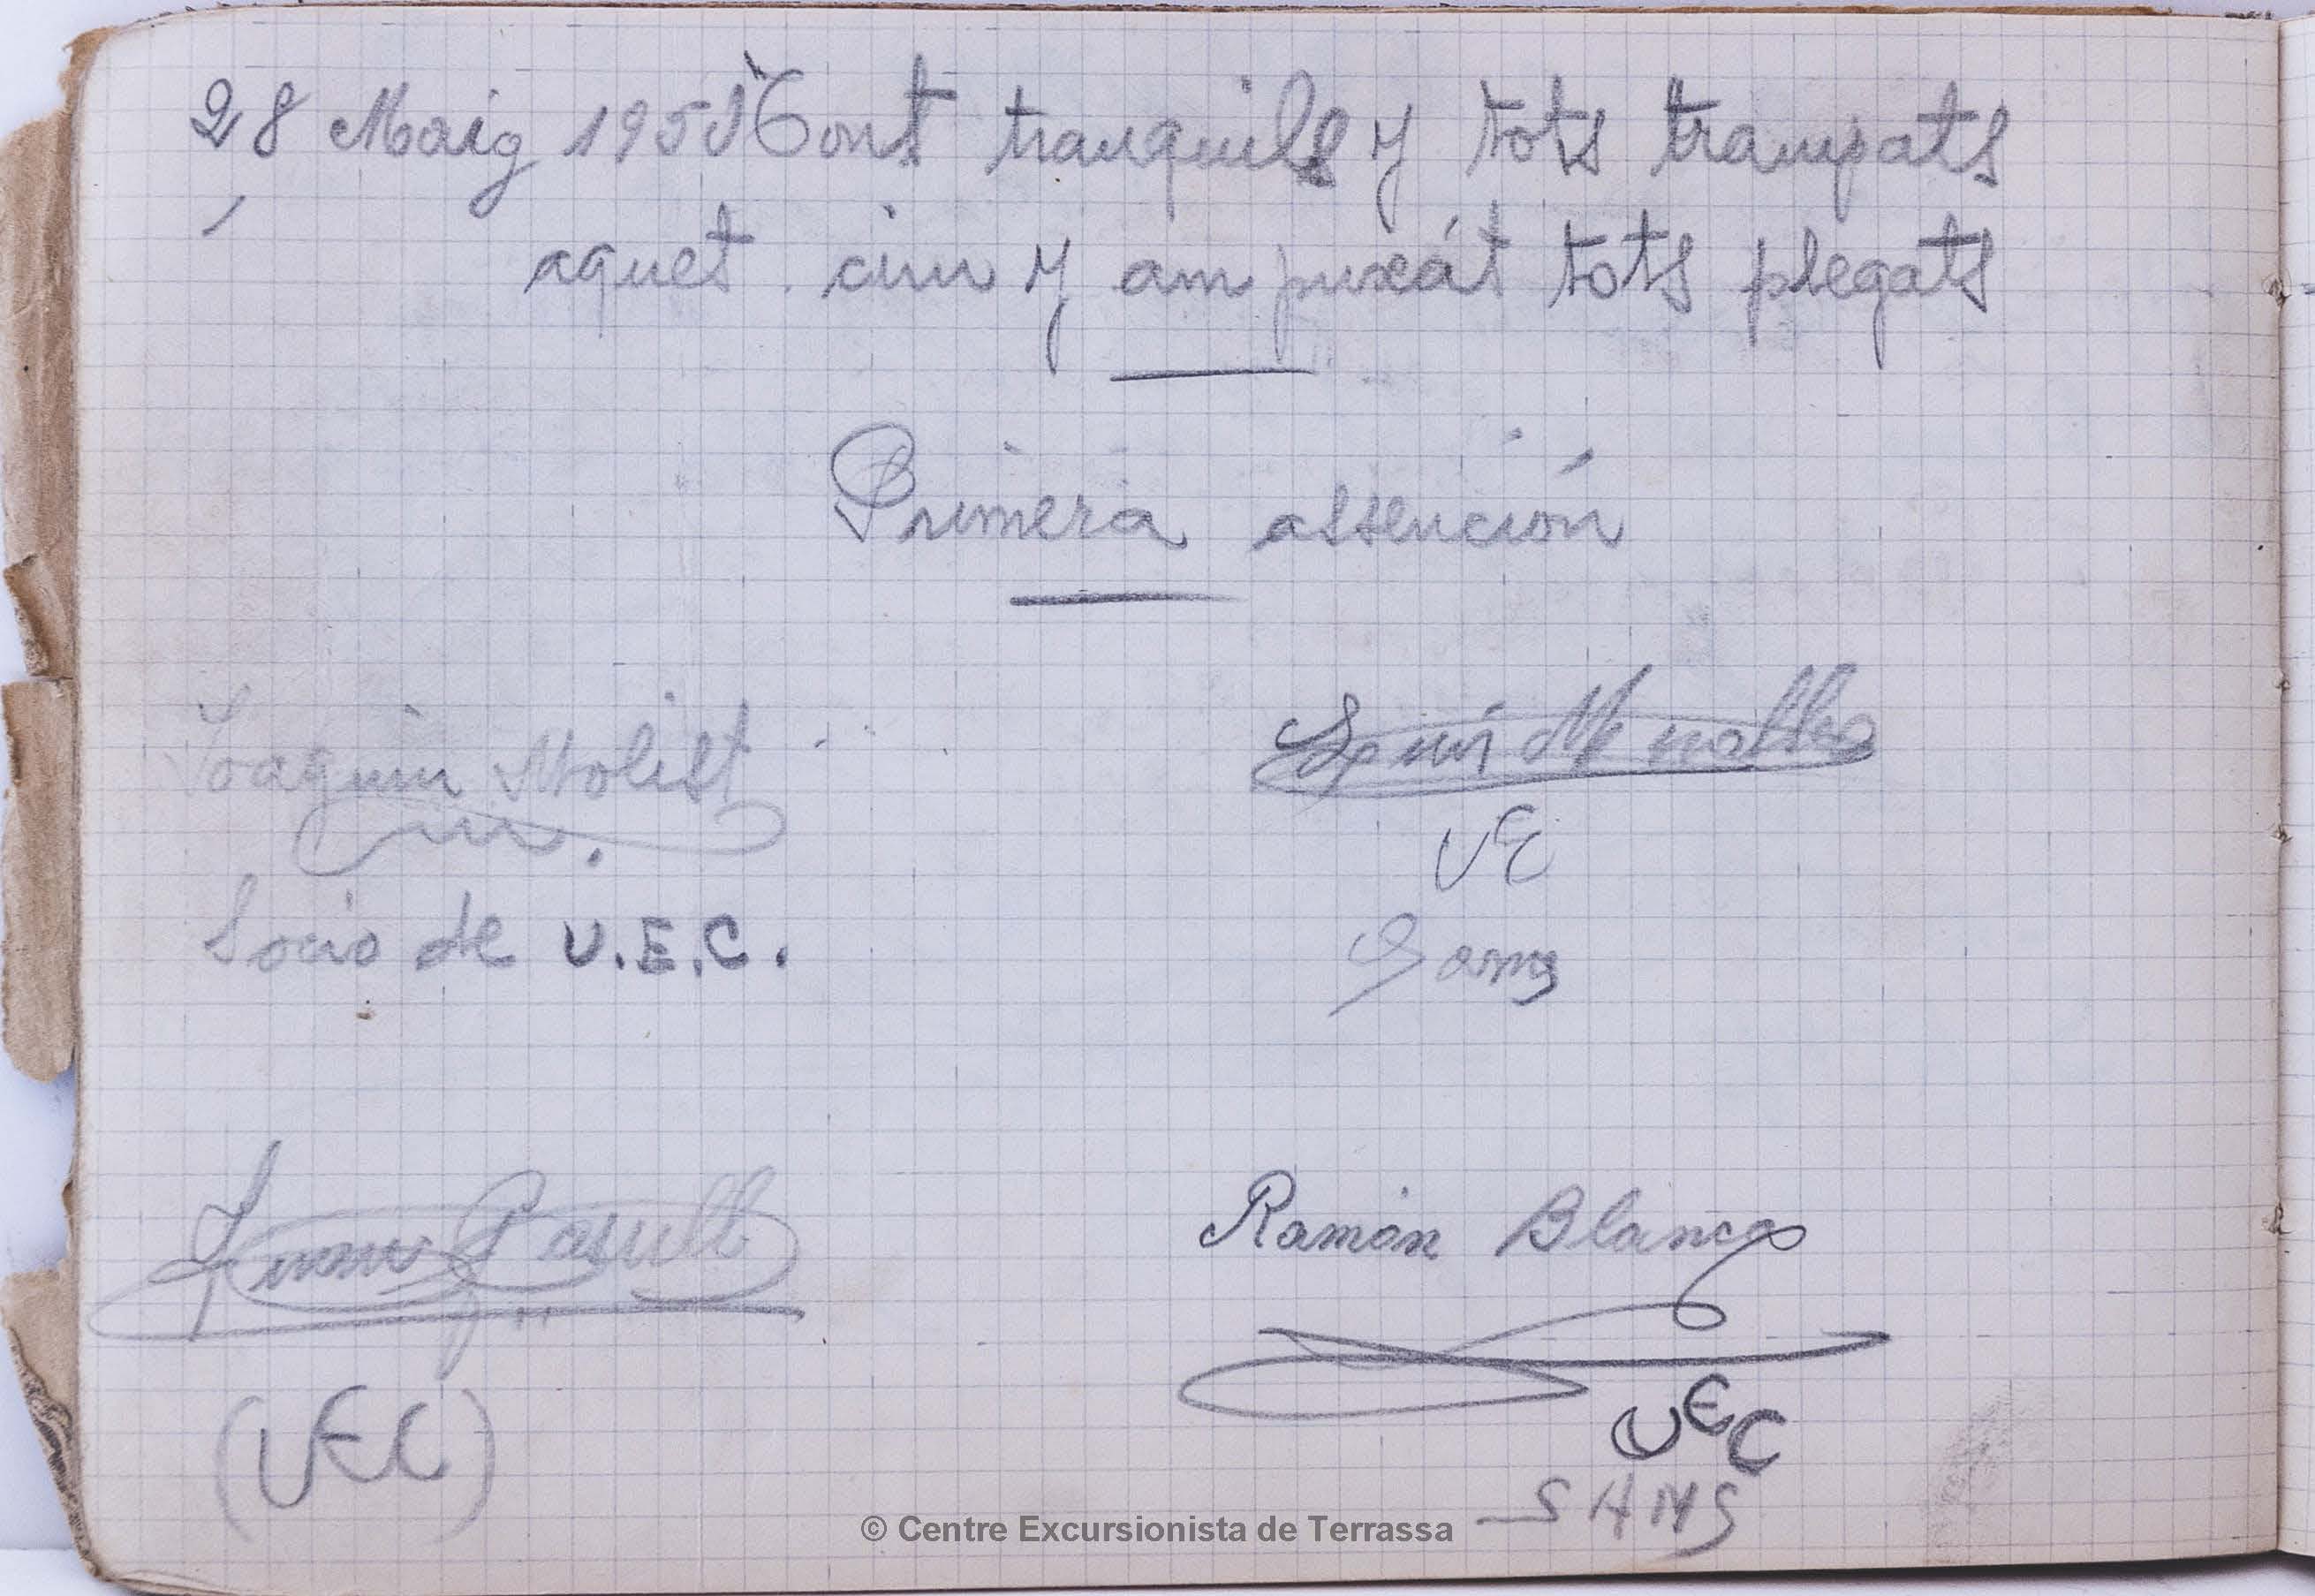 28 Maig 195 Tont tranquils y tots trampats
aquet cim y am puxát tots plegats
Primera assención
Joaquin Molist
Socio de U.E.C.
UE
Sans
Ramón Blanco
(UEC)
UEC
SANS
© Centre Excursionista de Terrassa